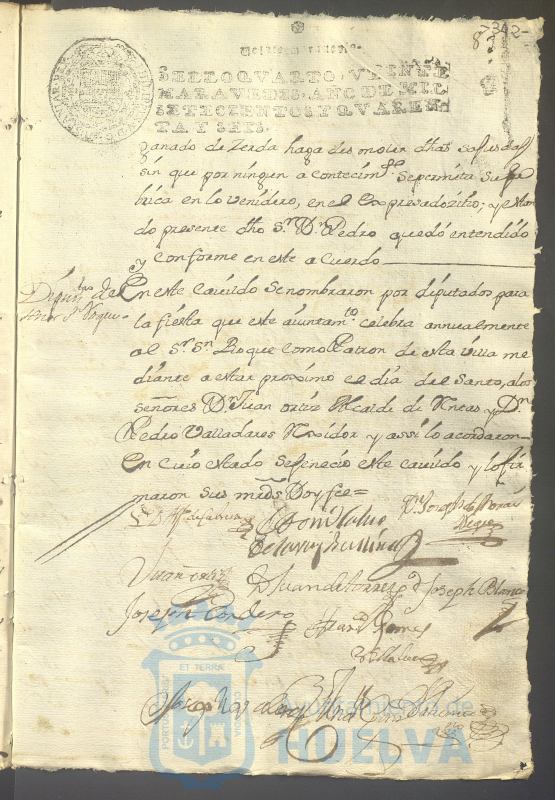 -342-
87
Veinte maravedis.
SELLO QVARTO, VEINTE
MARAVEDIS, AÑO DE MIL
SETECIENTOS Y QVAREN-
TA Y SEIS.
ganado de Zerda haga desmoler dhas
sin que por ningun acontecimto se permita su fa
brica en lo venidero, en el expresado zitio; y estan
do presente dho Sr. Dn Pedro quedó entendido
y conforme en este acuerdo
Diputos del
Señor Sn Roque
En este cavildo se nombraron por diputados para
la fiesta que este aiuntamto celebra annualmente
al Sr. Sn Roque como Patron de esta villa me
diante a estar proximo el dia del Santo, a los
señores Dn Juan ortiz Alcalde de y Dn
Pedro Valladares Rexidor y assi lo acordaron
En cuio estado se feneció este cavildo y lo fir
maron sus mrds Doy fee=
Juan ortiz
D Juan de torres
Dn Joseph Blanco
Joseph Cordero
Gomes
Villalva
PORTUS
ET TERRA
CUSTODIA
Ayuntamiento de
HUELVA